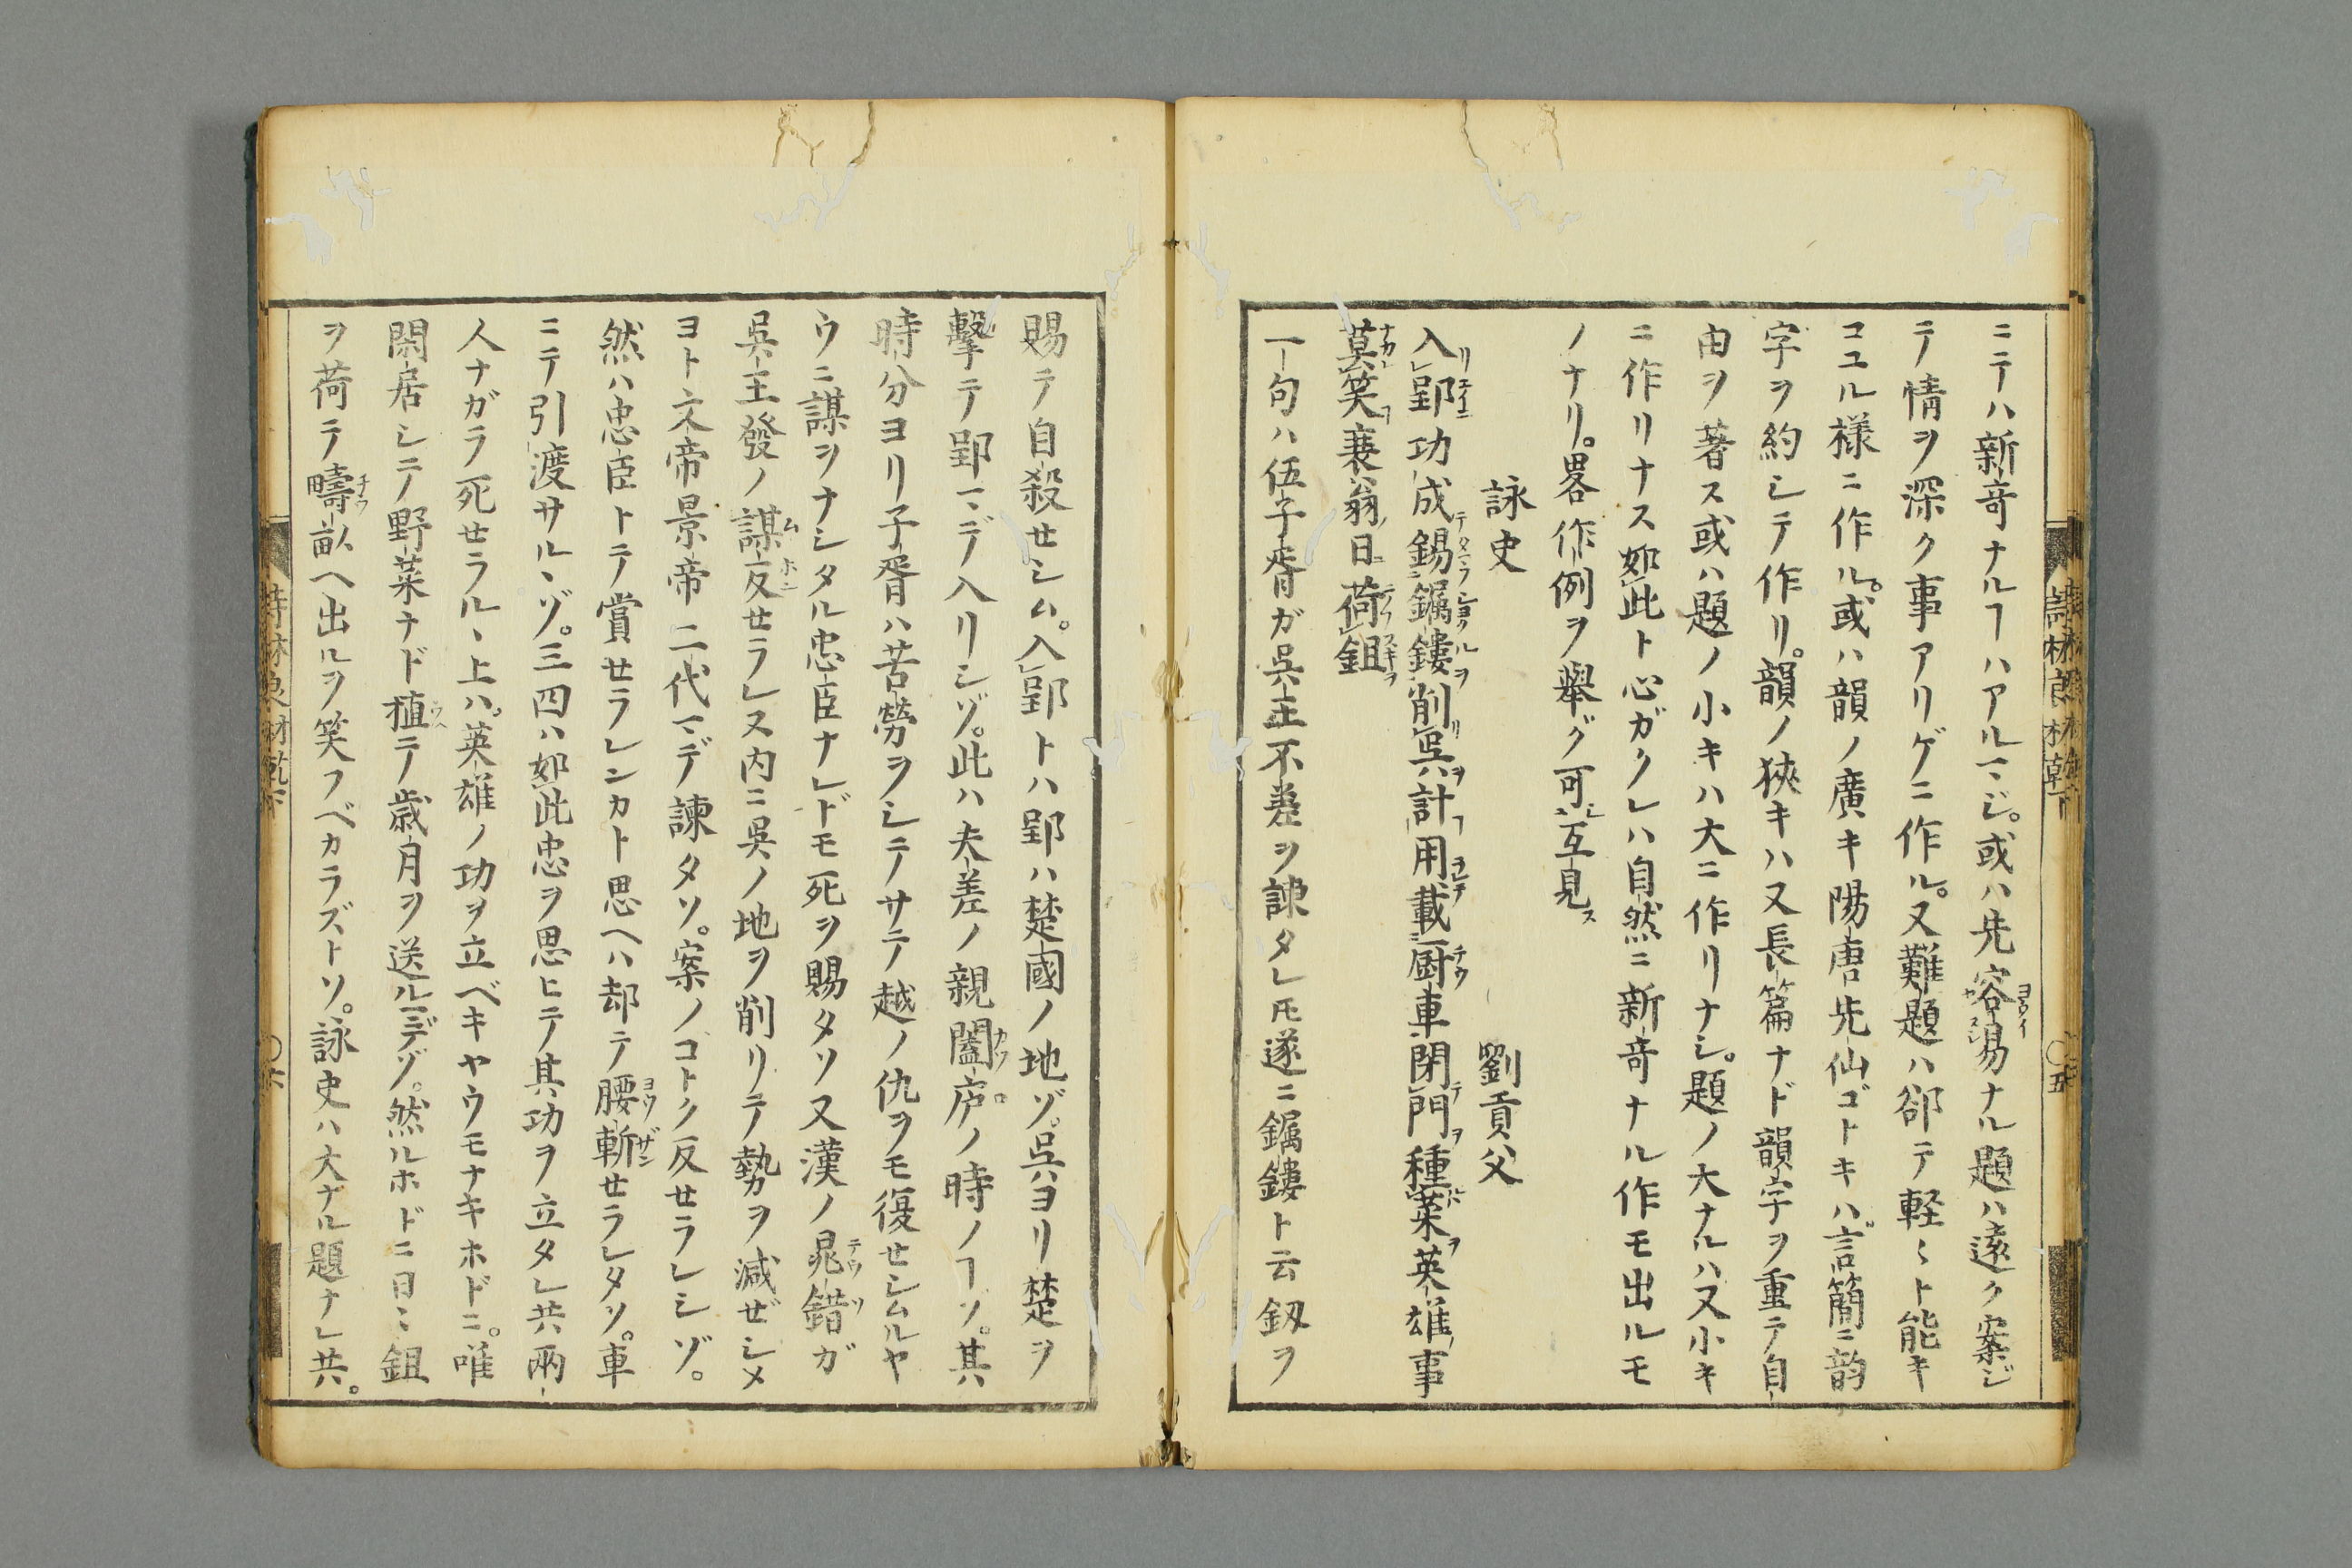 ニテハ新奇ナルヿハアルマジ。或ハ先容易ナル題ハ遠ク案ジ
テ情ヲ深ク事アリゲニ作ル。又難題ハ郤テ軽〻ト能キ
コユル様ニ作ル。或ハ韻ノ廣キ陽唐先仙ゴトキハ言簡ニ韵
字ヲ約シテ作リ。韻ノ狹キハ又長篇ナド韻字ヲ重テ自
由ヲ著ス或ハ題ノ小キハ大ニ作リナシ。題ノ大ナルハ又小キ
ニ作リナス如此ト心ガクレハ自然ニ新奇ナル作モ出ルモ
ノナリ。畧作例ヲ舉グ可互見ス
詠史　劉貢父
入郢功成錫鐲鏤削呉計用載厨車閉門種菜英雄事
莫笑衰翁日荷鉏
一句ハ伍子胥ガ呉王不差ヲ諌タレ𪜈遂ニ鐲鏤ト云釼ヲ
賜テ自殺セシム。入郢トハ郢ハ楚國ノ地ゾ。呉ヨリ楚ヲ
擊テ郢マデ入リシゾ。此ハ夫差ノ親闔庐ノ時ノヿソ。其ハ
時分ヨリ子胥ハ苦勞ヲシテサテ越ノ仇ヲモ復セシムルヤ
ウニ謀ヲナシタル忠臣ナレドモ死ヲ賜タソ又漢ノ晁錯ガ
呉王發ノ謀反セラレヌ内ニ呉ノ地ヲ削リテ勢ヲ減ゼシメ
ヨト文帝景帝二代マデ諌タソ。案ノゴトク反セラレシゾ。
然ハ忠臣トテ賞セラレンカト思ヘハ却テ腰斬セラレタソ。車
ニテ引渡サルヽゾ。三四ハ如此忠ヲ思ヒテ其功ヲ立タレ共兩
人ナガラ死セラルヽ上ハ。英雄ノ功ヲ立ベキヤウモナキホドニ。唯
閑居シテ野菜ナド植テ歳月ヲ送ルマデゾ。然ルホドニ日〻鉏
ヲ荷テ疇畝ヘ出ルヲ笑フベカラズトソ。詠史ハ大ナル題ナレ共。